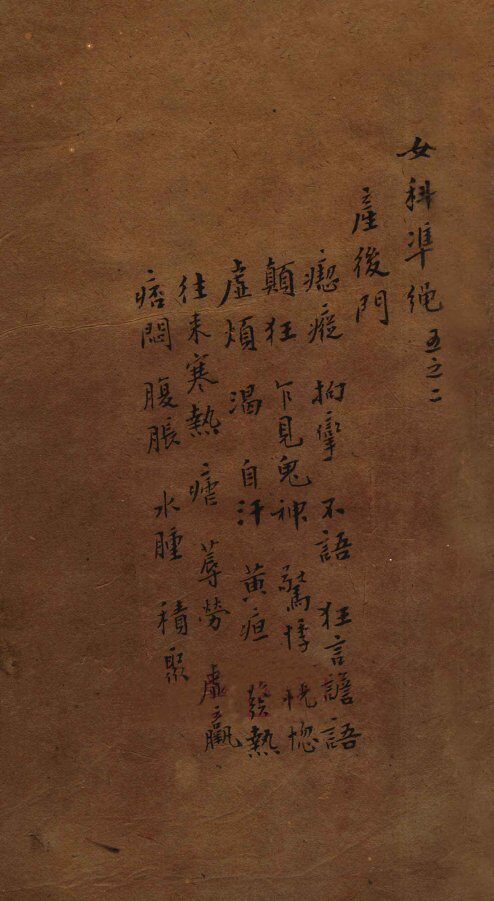 女科準绳 五之二
產後門
瘛瘲 拘攣 不語 狂言譫語
顛狂 乍見鬼神 驚悸 恍惚
虛煩 渴 自汗 黄疸 發熱
往来寒熱 瘧 蓐勞 虚羸
痞悶 腹脹 水腫 積聚